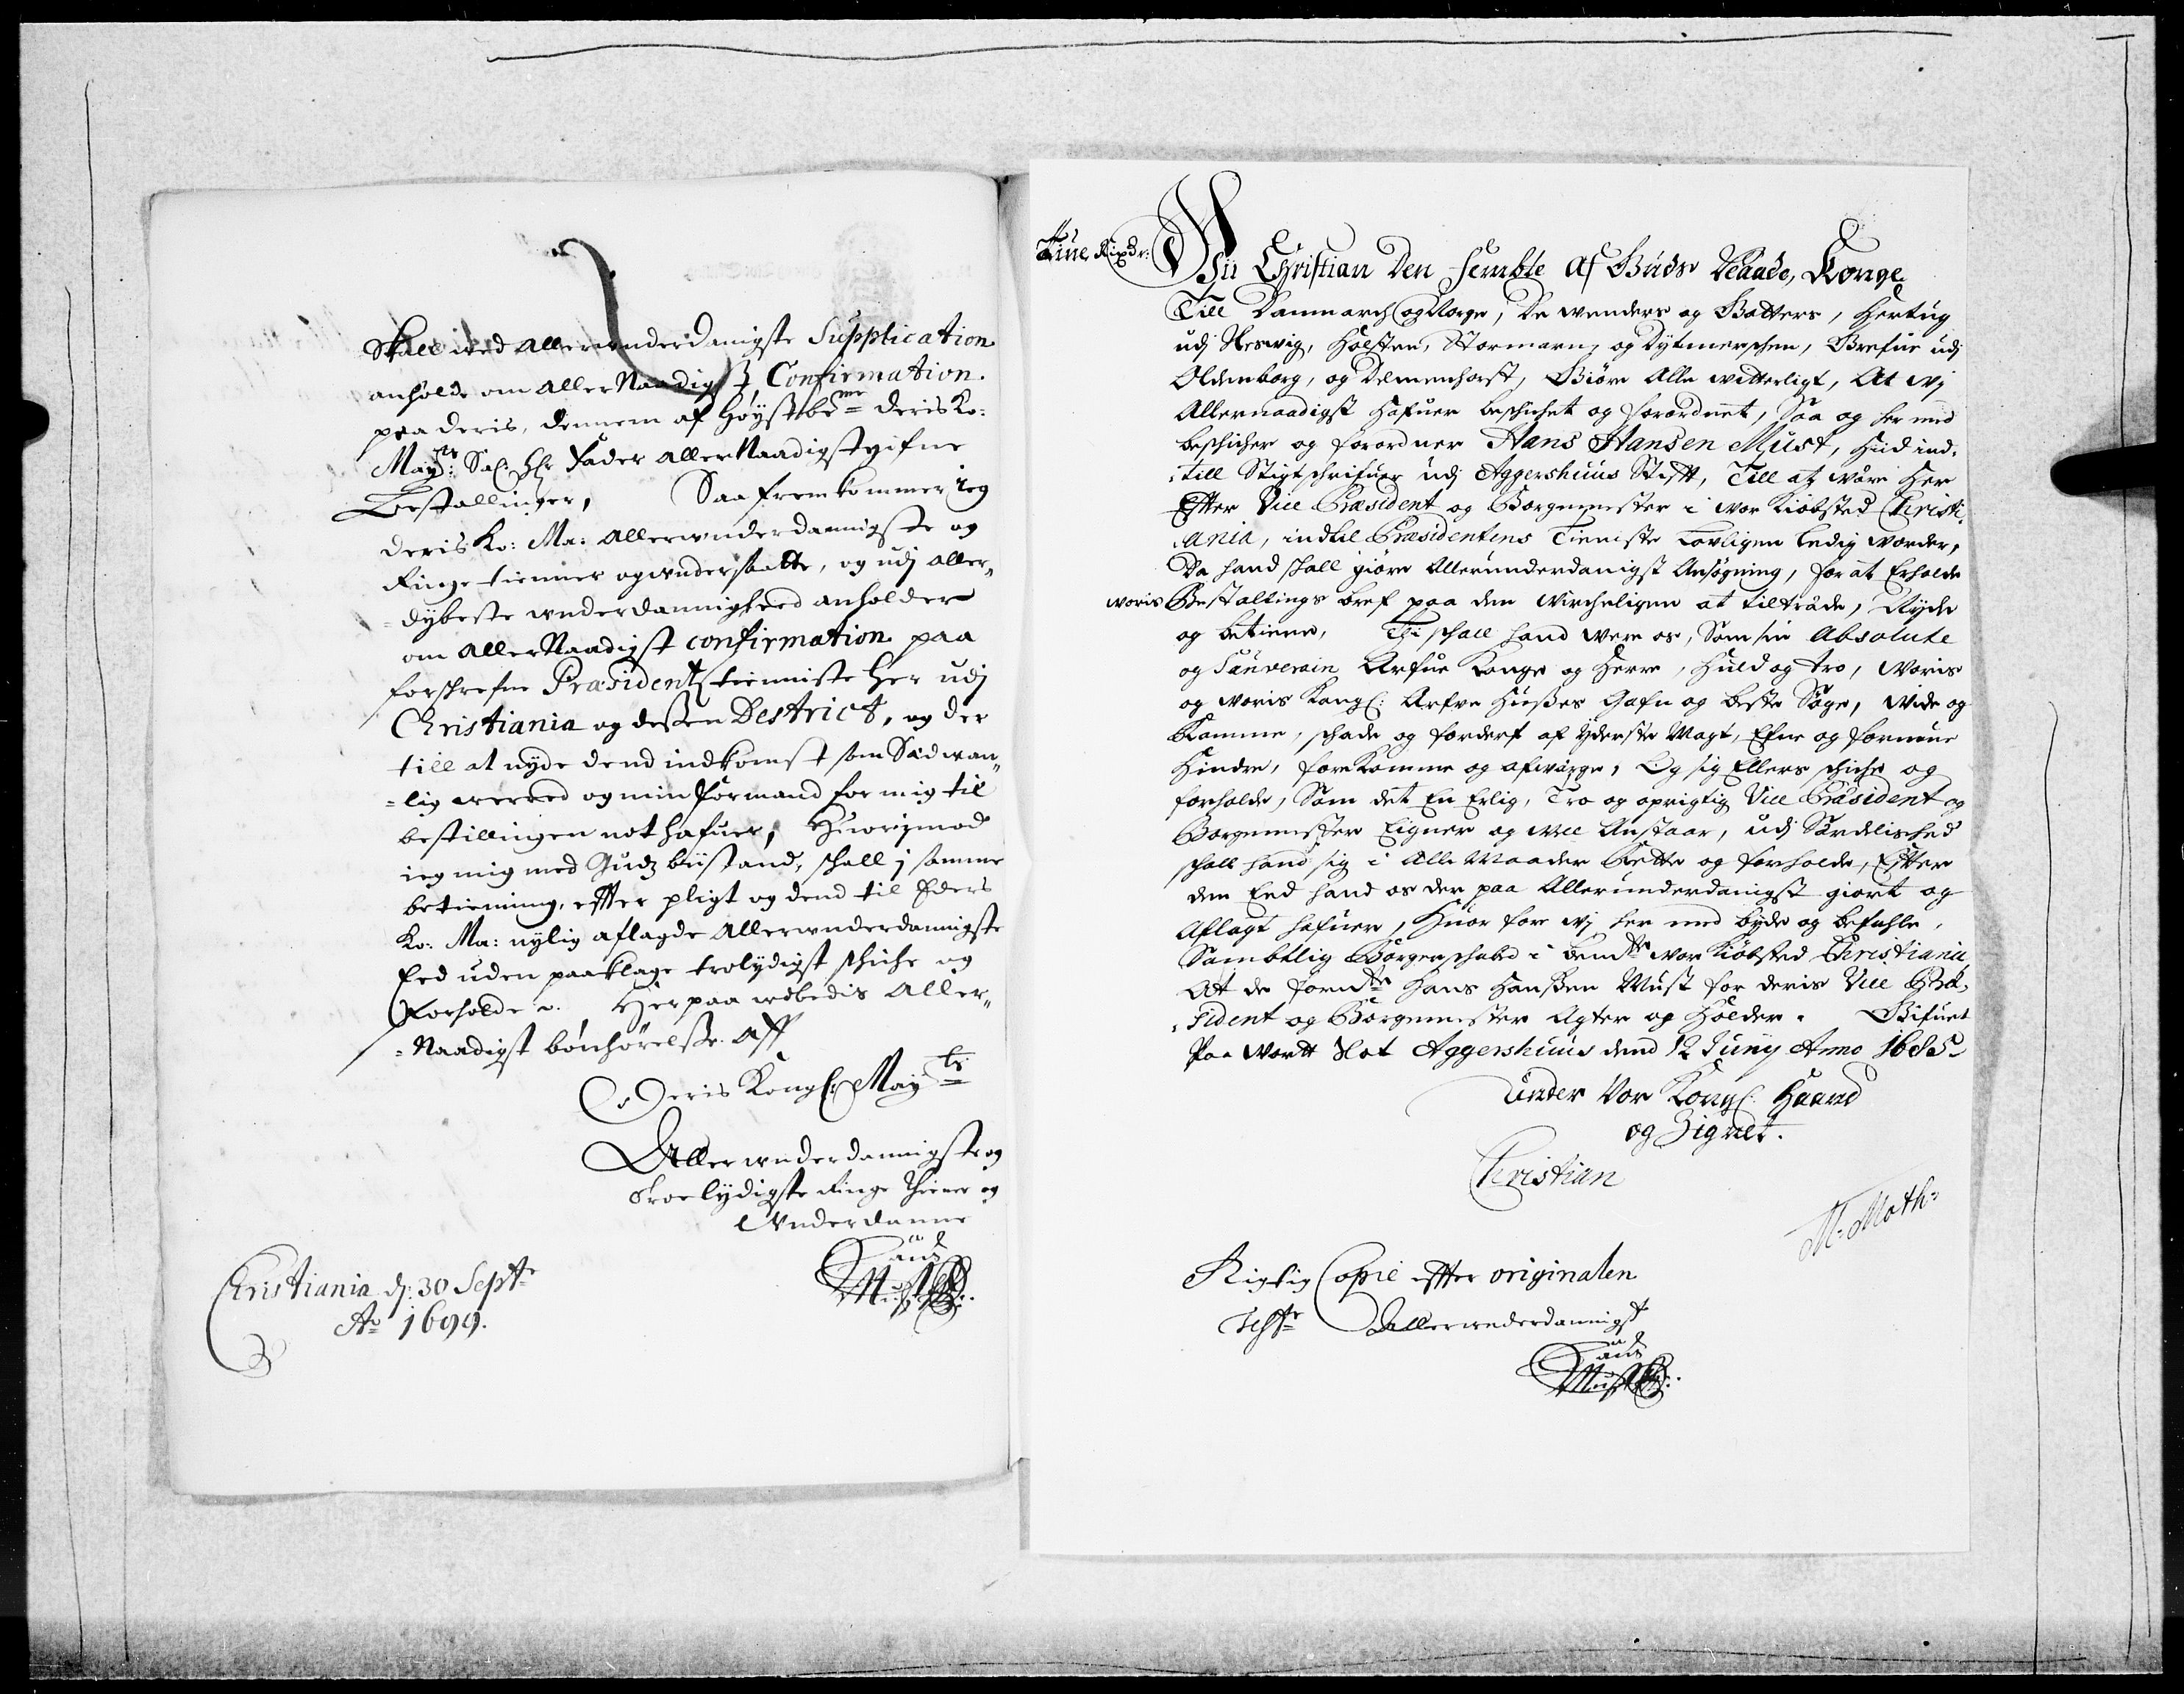 Skall med allerwnderdanigste Supplication
anholde om aller Naadigst Confirmation
paa deris, dennem af høystbe^me deris Ko:
May^ts: Sal. Hr Fader aller Naadigst gifne
Bestallinger, Saa fremkommer ieg
deris Ko: Ma: allerwnderdannigste og
Ringe tienner og wndersaatte, og udj aller„
dybeste wnderdannigheed anholder
om aller Naadigst confirmation paa
forskrefne Præsidents tienniste her udj
Christiania og dessen Destrict, og der
till at nyde dend indkomst som Sædwan„
=lig wereed og min formand for mig til
bestillingen nøt hafuer, Huorjmod
ieg mig med Gudz bistand, skall j samme
betiening, effter pligt og dend til Eders
Ko: Ma: nylig aflagde allerwnderdannigste
Eed uden paaklage trolydigst skiche og
Forholde. Her paa wdbedis Aller„
=Naadigst bønhørelsse. Aff
Deris Kongl: May^ts
Allerwnderdannigste og
troe lydigste ringe Thiener og
Wnderdanne
Christiania dj: 30 Sept^r
A^o 1699.
Tiue Rixdr:
Wii Christian den Fembte af Guds Naade, Konge
Till Danmarch og Norge, De Wenders og Gotters, Hertug
udj Slesvig, Holsten, Stormarn, og Dytmerschen, Grefue udj
Oldenborg, og Delmenhorst, Giøre Alle witterligt, At wj
Allernaadigst hafuer beschichet og forordnet, Saa og her med
beschicher og forordner Hans Hansen Must, hid ind„
till Stigtschrifuer udj Aggershuus Stift, Till at wære her
Effter Vice Præsident og Borgemester i wor Kiøbsted Christi„
ania, indtil Præsidentens Tieniste lovligen ledig worder,
Da hand schall giøre Allerunderdanigst Ansøgning, for at Erholde
woris Bestallings bref paa den wircheligen at tiltræde, Nyde
og betiene, Thi schall hand were os, Som sin Absolute
og Souverain Arfue Konge og Herre, Huld og tro, Woris
og woris Kongl: Arfve Hußes Gafn og beste Søge, Wide og
Ramme, schade og forderf af yderste Magt, Efne og formue
Hindre, forekomme og afværge, Og sig Ellers schiche og
forholde, Som det En Erlig, Tro og oprigtig Vice Præsident og
Borgemester Eigner og well Anstaar, udj Særdelished
schall hand sig i alle maader Rette og forholde, Effter
den Eed hand os der paa Allerunderdanigst giort og
Aflagt hafuer, Huor for wj her med byde og befahle,
Samptlig Borgerschabed i bem^te wor Kiøbsted Christiania
At de forn^te Hans Hanssen Must for deris Vice Præ„
sident og Borgemester Agter og Holder. Gifuet
Paa wortt Slot Aggershuus dend 12 Juny Anno 1685
Under Vor Kongl: Haand
og Signet.
Christian
M. Moth
Rigtig Copie effter originalen
Test^r Allerwnderdannigst